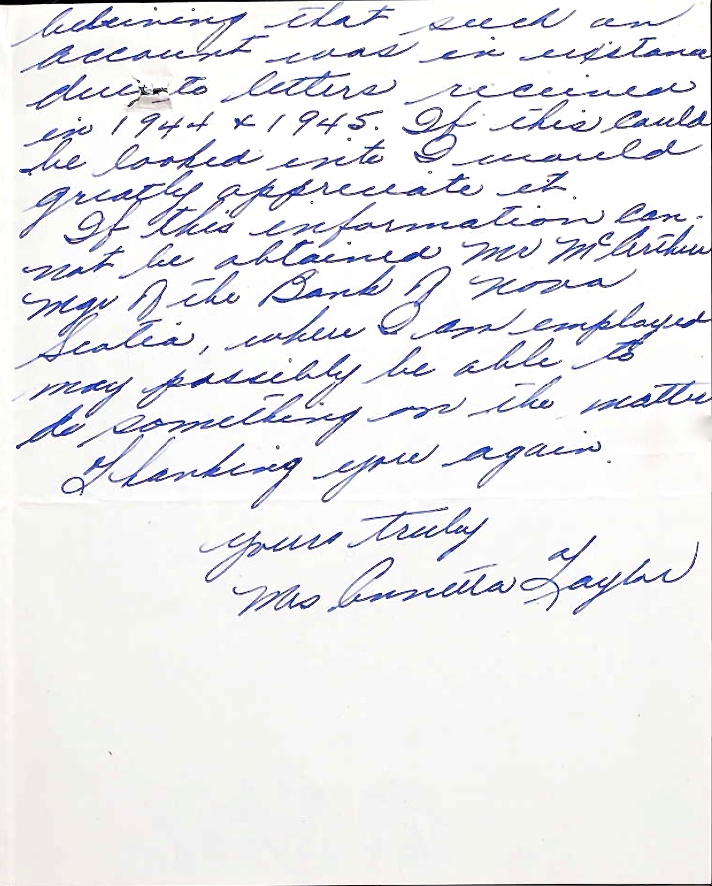 believing that such an
account was in existance
due to letters received
in 1944 & 1945. If this could
be looked into I would
greatly appreciate it.
If this information can-
not be obtained Mr McArthur
mgr of the Bank of Nova
Scotia, where I am employed
may possibly be able to
do something on the matter
Thanking you again.
Yours truly
Mrs Annetta Taylor